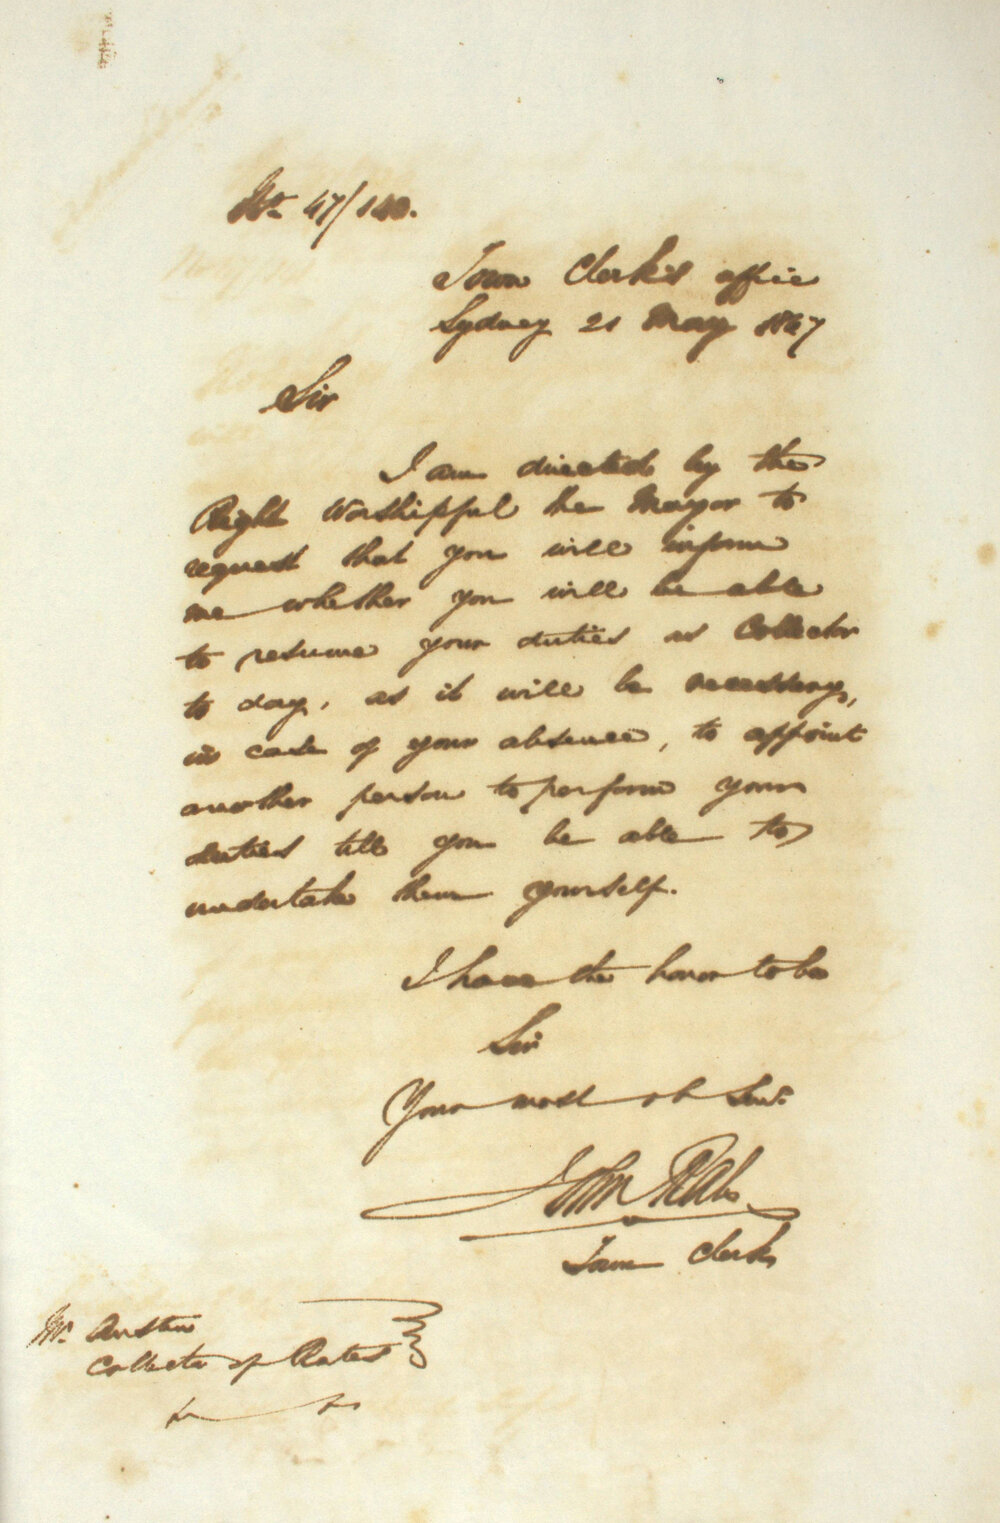 No. 47/140.
Town Clerk's office
Sydney 21 May 1847
Sir
I am directed by the
Right Worshipful the Mayor to
request that you will inform
me whether you will be able
to resume your duties as Collector
to day, as it will be necessary,
in case of your absence, to appoint
another person to perform your
duties till you be able to
undertake them yourself.
I have the honor to be
Sir
Your most ob Serv.
John Rae
Town Clerk
Mr. Austin
Collector of Rates